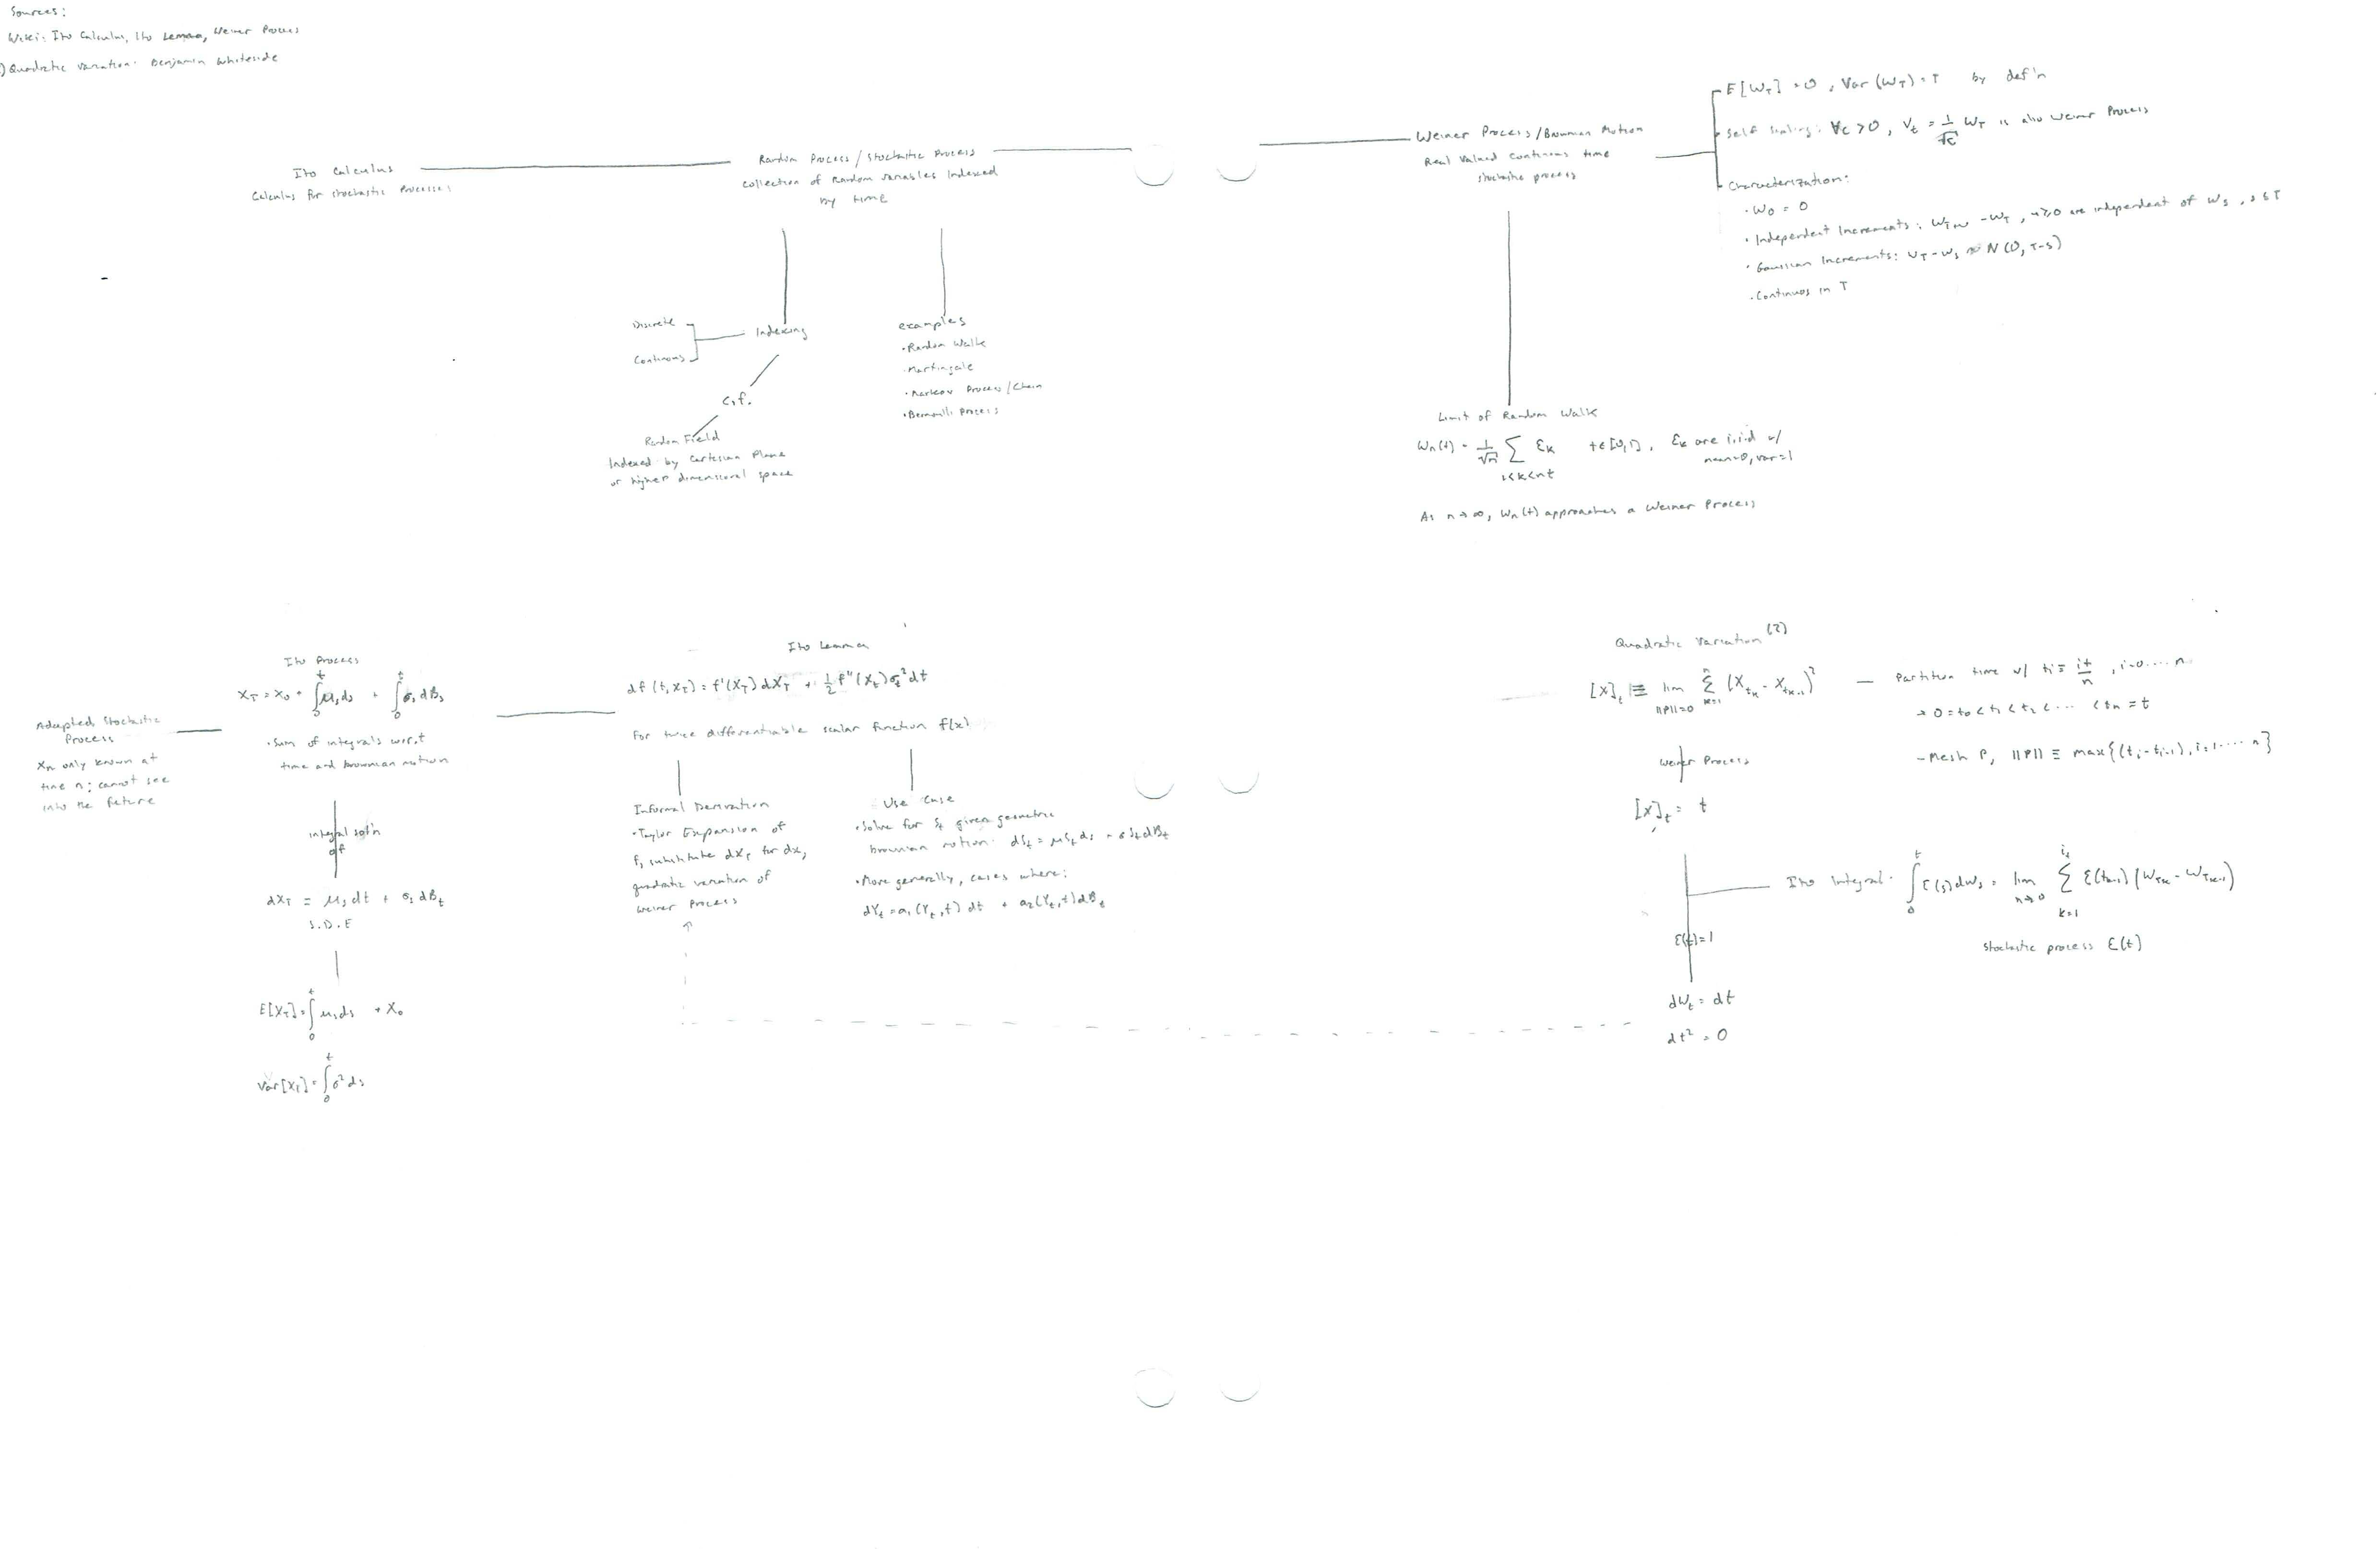 Sources:
Wiki: Ito Calculus, Ito Lemma, Weiner Process
) Quadratic Variation: Benjamin Whiteside
Ito Calculus
Calculus for stochastic processes
Random Process / Stochastic Process
collection of Random variables Indexed
by time
Discrete
Continuous
Indexing
c.f.
Random Field
Indexed by Cartesian Plane
or higher dimensional space
examples
• Random Walk
• Martingale
• Markov Process / Chain
• Bernoulli Process
Weiner Process / Brownian Motion
Real valued continuous time
stochastic process
E[W_T] = 0, Var(W_T) = T by def'n
Self scaling: ∀c > 0, V_t = 1/√c W_T is also Weiner Process
Characterization:
• W_0 = 0
• Independent Increments: W_T+u - W_T, u ≥ 0 are independent of W_s, s ≤ T
• Gaussian Increments: W_T - W_s ~ N(0, T-s)
• Continuos in T
Limit of Random Walk
W_n(t) = 1/√n ∑ ε_k t ∈ [0,1], ε_k are i.i.d w/
1<k<nt mean=0, var=1
As n → ∞, W_n(t) approaches a Weiner Process
Adapted Stochastic
Process
X_n only known at
time n; cannot see
into the future
Ito Process
X_T = X_0 + ∫_0^t μ_s ds + ∫_0^t σ_s dB_s
• Sum of integrals w.r.t
time and brownian motion
integral sol'n
of
dX_T = μ_s dt + σ_s dB_t
S.D.E
E[X_T] = ∫_0^t μ_s ds + X_0
Var[X_T] = ∫_0^t σ² ds
Ito Lemma
df(t, X_T) = f'(X_T) dX_T + 1/2 f''(X_t) σ_t² dt
For twice differentiable scalar function f(x)
Informal Derivation
• Taylor Expansion of
f, substitute dX_T for dx,
quadratic variation of
Weiner Process
Use Case
• Solve for S_t given geometric
brownian motion: dS_t = μS_t ds + σS_t dB_t
• More generally, cases where:
dY_t = a_1(Y_t, t) dt + a_2(Y_t, t) dB_t
Quadratic Variation (2)
[X]_t ≡ lim_||P||=0 ∑_k=1^n (X_t_k - X_t_k-1)²
— Partition time w/ t_i = it/n, i=0....n
→ 0 = t_0 < t_1 < t_2 < ... < t_n = t
- Mesh P, ||P|| ≡ max{(t_i - t_i-1), i=1.....n}
Weiner Process
[X]_t = t
Ito Integral: ∫_0^t ε(s) dW_s = lim_n→0 ∑_k=1^i_t ε(t_k-1)(W_T_k - W_T_k-1)
Stochastic process ε(t)
ε(t)=1
dW_t = dt
dt² = 0